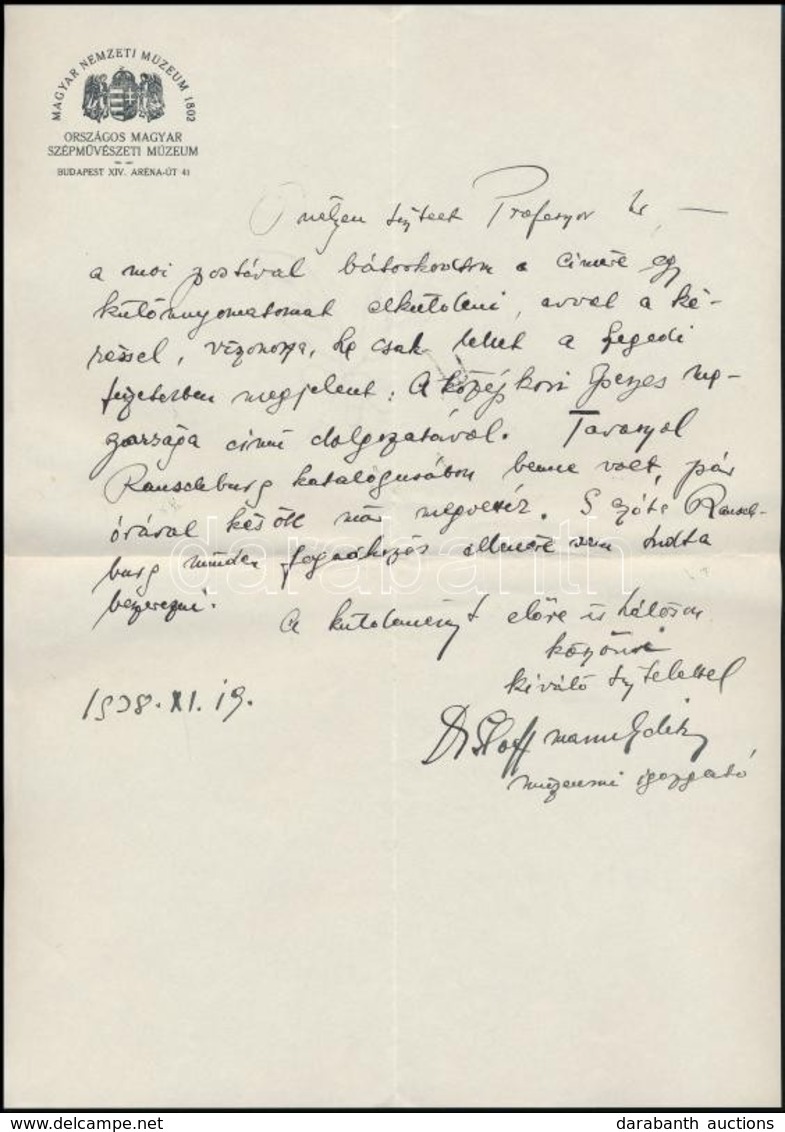 MAGYAR NEMZETI MÚZEUM 1802
ORSZÁGOS MAGYAR
SZÉPMŰVÉSZETI MÚZEUM
BUDAPEST XIV. ARÉNA-ÚT 41
Mélyen tisztelt Professzor Úr, —
a mai postával bátorkodom a címére egy
különnyomatomat elküldeni, avval a ké-
réssel, viszonozza, ha csak lehet a szegedi
füzetekben megjelent: A középkori
címü dolgozatával. Tavasszal
Rauschburg katalógusában benne volt, pár
órával később már megvették. S azóta Rausch-
burg minden fogadkozás ellenére sem tudta
beszerezni.
A küldeményt előre is hálásan
köszöni
kiváló tisztelettel
1938. XI. 19.
Dr Hoffmann Edith
múzeumi igazgató
darabanth
darabanth auctions